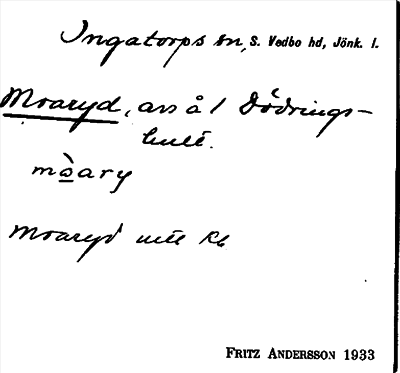 Ingatorps sn, S. Vedbo hd, Jönk. l.
Moaryd, avs å 1 Dödrings-
hult.
mò̲ary
Moaryd utt Rb
FRITZ ANDERSSON 1933